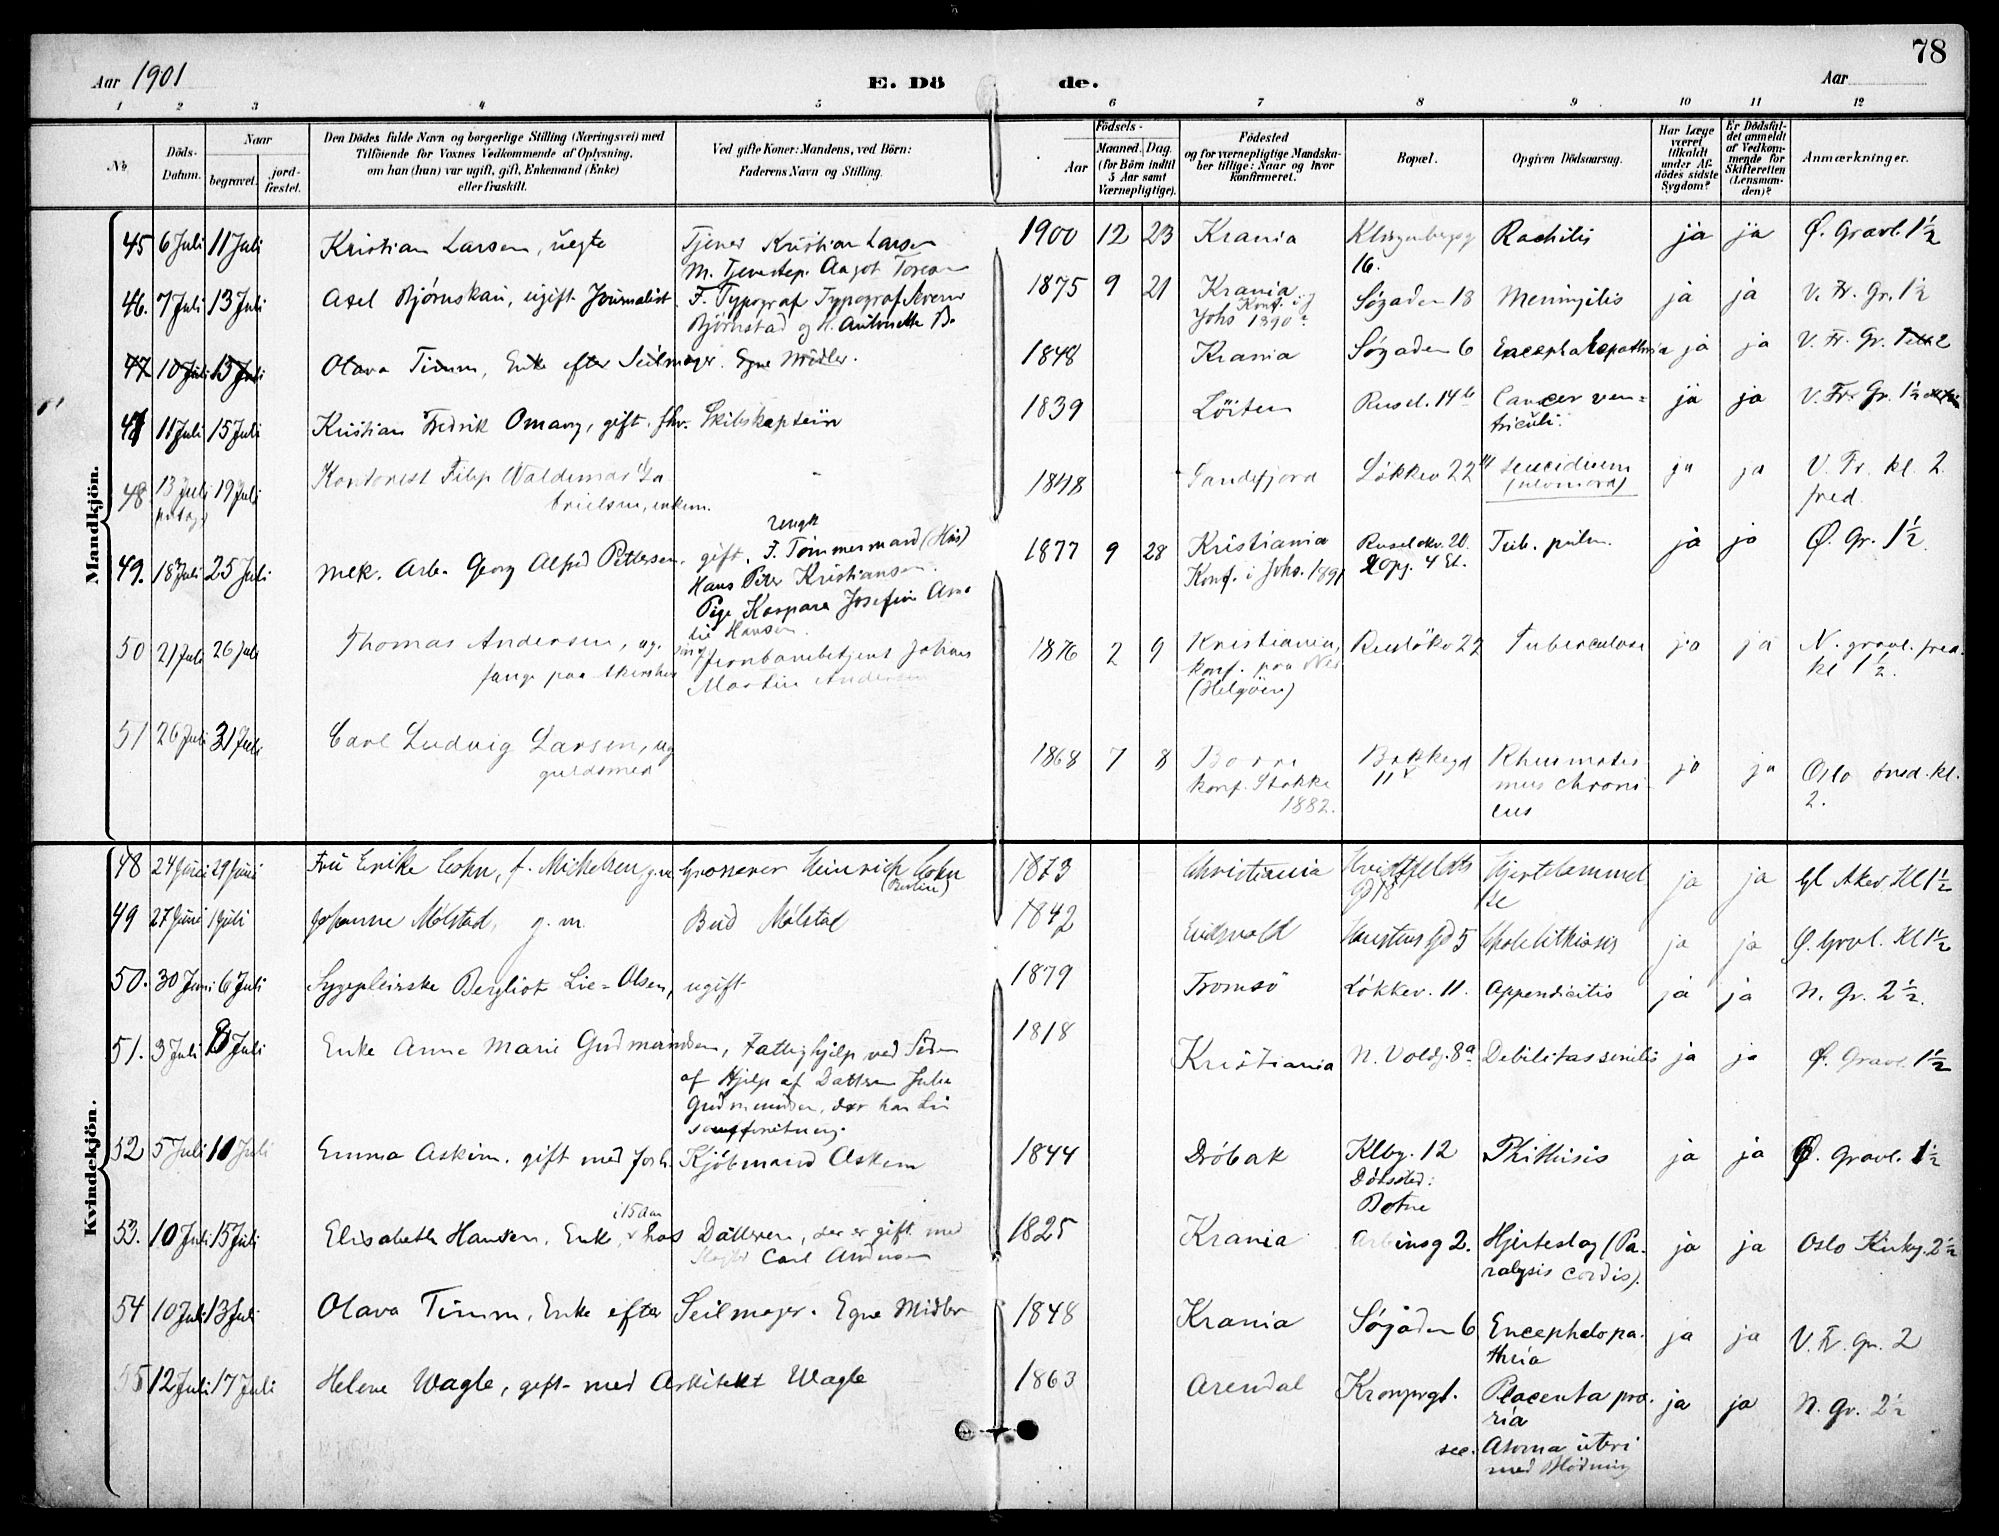 78
Aar 1901 E. Dö de. Aar
1 2 3 4 5 6 7 8 9 10 11 12
No. Döds-Datum. Naar begravet. jordfæstet. Den Dödes fulde Navn og borgerlige Stilling (Næringsvei) med Tilföiende for Voxnes Vedkommende af Oplysning, om han (hun) var ugift, gift, Enkemand (Enke) eller fraskilt. Ved gifte Koner: Mandens, ved Börn: Faderens Navn og Stilling. Aar Födsels- Maaned. Dag. (for Börn indtil 5 Aar samt Værnepligtige). Födested og for værnepligtige Mandskaber tillige: Naar og hvor konfirmeret. Bopæl. Opgiven Dödsaarsag. Har Læge været tilkaldt under Afdödes sidste Sygdom? Er Dödsfaldet anmeldt af Vedkommende for Skifteretten (Lensmanden)? Anmærkninger.
Mandkjön.
45 6 Juli 11 Juli Kristian Larsen, uegte Tjener Kristian Larsen 1900 12 23 Krania Rachitis ja ja Ø. Gravl. 1½
M. Aagot 16.
46. 7 Juli 13 Juli Axel Bjørnskau, ugift Journalist F. Typograf Typograf 1875 9 21 Krania Søgaden 18 Meningitis ja ja V. Fr. Gr. 1½
Bjørnstad og H. Antonette B. Johs 1890
47 10 Juli 13 Juli Olava Timm, Enke efter Seilmager. Egne Midler. 1848 Krania Søgaden 6 Encephalopathria ja ja V. Fr. Gr. 2
47 11 Juli 15 Juli Kristian Fredrik Omang, gift, fhv. Skibskaptein 1839 Löiten Rusel. 14 b Cancer ven= ja ja V. Fr. Gr. 1½
triculi.
48. 13 Juli 19 Juli Kontorist Filip Waldemar Ga 1848 Sandefjord Løkkev 22 Suicidium ja ja V. Fr. kl. 2.
brielsen, enkem. fred.
49. 18 Juli 25 Juli mek. Arb. Georg Alfred Pettersen, gift. F. Tømmermand 1877 9 28 Kristiania 20 Tub. pulm. ja ja Ø. Gr. 1½
Hans Peter Kristiansen. Konf. i Johs. 4 Et.
Pige Kaspara Josefine Ama
lie Hansen.
50 21 Juli 26 Juli Thomas Andersen, ug. Jernbanebetjent Johan 1876 2 9 Kristiania, Ruslökv 22 Tuberculose ja ja N. gravl. fred.
fange paa Akershus Martin Andersen konf. paa Nes kl 1½.
(Helgöen)
51 26 Juli 31 Juli Carl Ludvig Larsen, ug 1868 7 8 Borre Bakkegd Rheumatis ja ja Oslo fred. kl.
guldsmed konf. Stokke 11 mus chroni 2.
1882. cus
Kvindekjön.
48 24 Juni 29 Juni Fru Enrike Cohn, f. Mickelsen g.m. Grosserer Heinrich Cohn 1873 Christiania Hjertelammel ja ja Gl Aker. Kl 1½
(Berlin) se
49 27 Juni 1 Juli Johanne Mølstad, g. m. Bud Mølstad 1842 Eidsvold 5 Cholelithiasis ja ja Ø. Gravl. Kl 1½
50. 30 Juni 6 Juli Sygepleierske Bergliot Lie-Olsen, ugift 1879 Tromsö Løkkev. 11. Appendicitis ja ja N. Gr. 2½.
51. 3 Juli 8 Juli Enke Anne Marie Gudmundsen, Fattighjelp ved Siden 1818 Kristiania N. Voldg. 8a Debilitas senilis ja ja Ø. Gravl. 1½
af Hjelp af Datteren Julie
Gudmundsen, der har Li
52 5 Juli 10 Juli Emma Askim. gift med Kjøbmand Askim 1844 Dröbak Klbg. 12 Phthisis ja ja Ø. Gravl. 1½
Dödssted:
Botne
53. 10 Juli 15 Juli Elisabeth Hansen. Enke, i 15 Aar hos Datteren, der er gift med 1825 Krania Arbinsg 2. Hjerteslag (Pa- ja ja Oslo Kirkg. 2½
Carl Andersen ralysis cordis).
54 10 Juli 13 Juli Olava Timm, Enke efter Seilmager. Egne Midler 1848 Krania Søgaden 6 Encephalopa- ja ja V. Fr. Gr. 2
thria
55 12 Juli 17 Juli Helene Wagle, gift med Arkitekt Wagle 1863 Arendal Kronprgt. Placenta præ- ja ja N. Gr. 2½
via
sec. Atonia uteri
med Blödning